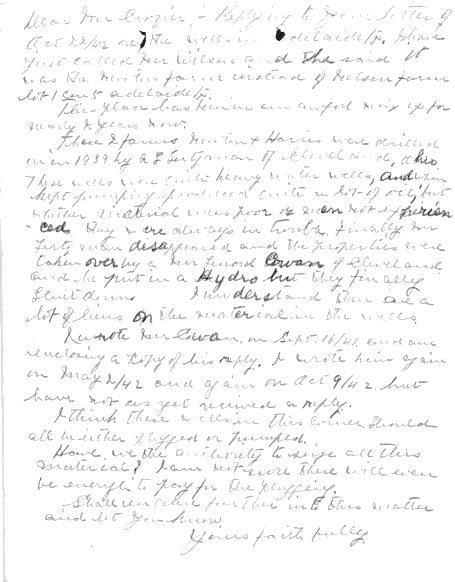 Dear Mr Crozier, - Replying to your letter of
Oct 22/42 on the wells in Adelaide Tp. I have
just called Mr Wilson and he said it
was the Newton farm instead of Nelson farm
lot 1 Con 5 Adelaide Tp.
This place has been an awful mix up for
years now.
These 2 farms Newton & Harris were drilled
in in 1939 by of Cleveland, Ohio
These wells were quite heavy water wells, and when
kept pumping produced quite a lot of oil, but
whether material was poor or men not experien
ced they were always in trouble. Finally Mr
disappeared and the properties were
taken over by a Mr Cowan of Cleveland
and he put in a Hydro but they finally
shut down I understand there are a
lot of liens on the material in the wells.
I wrote Mr Cowan, on Sept. 16/41, and am
enclosing a copy of his reply. I wrote him again
on May 2/42 and again on Oct 9/42 but
have not as yet received a reply.
I think these wells in this corner should
all be either plugged or pumped.
Have we the authority to seize all this
material? I am not sure there will even
be enough to pay for the plugging.
Shall enquire further into this matter
and let you know.
Yours faithfully